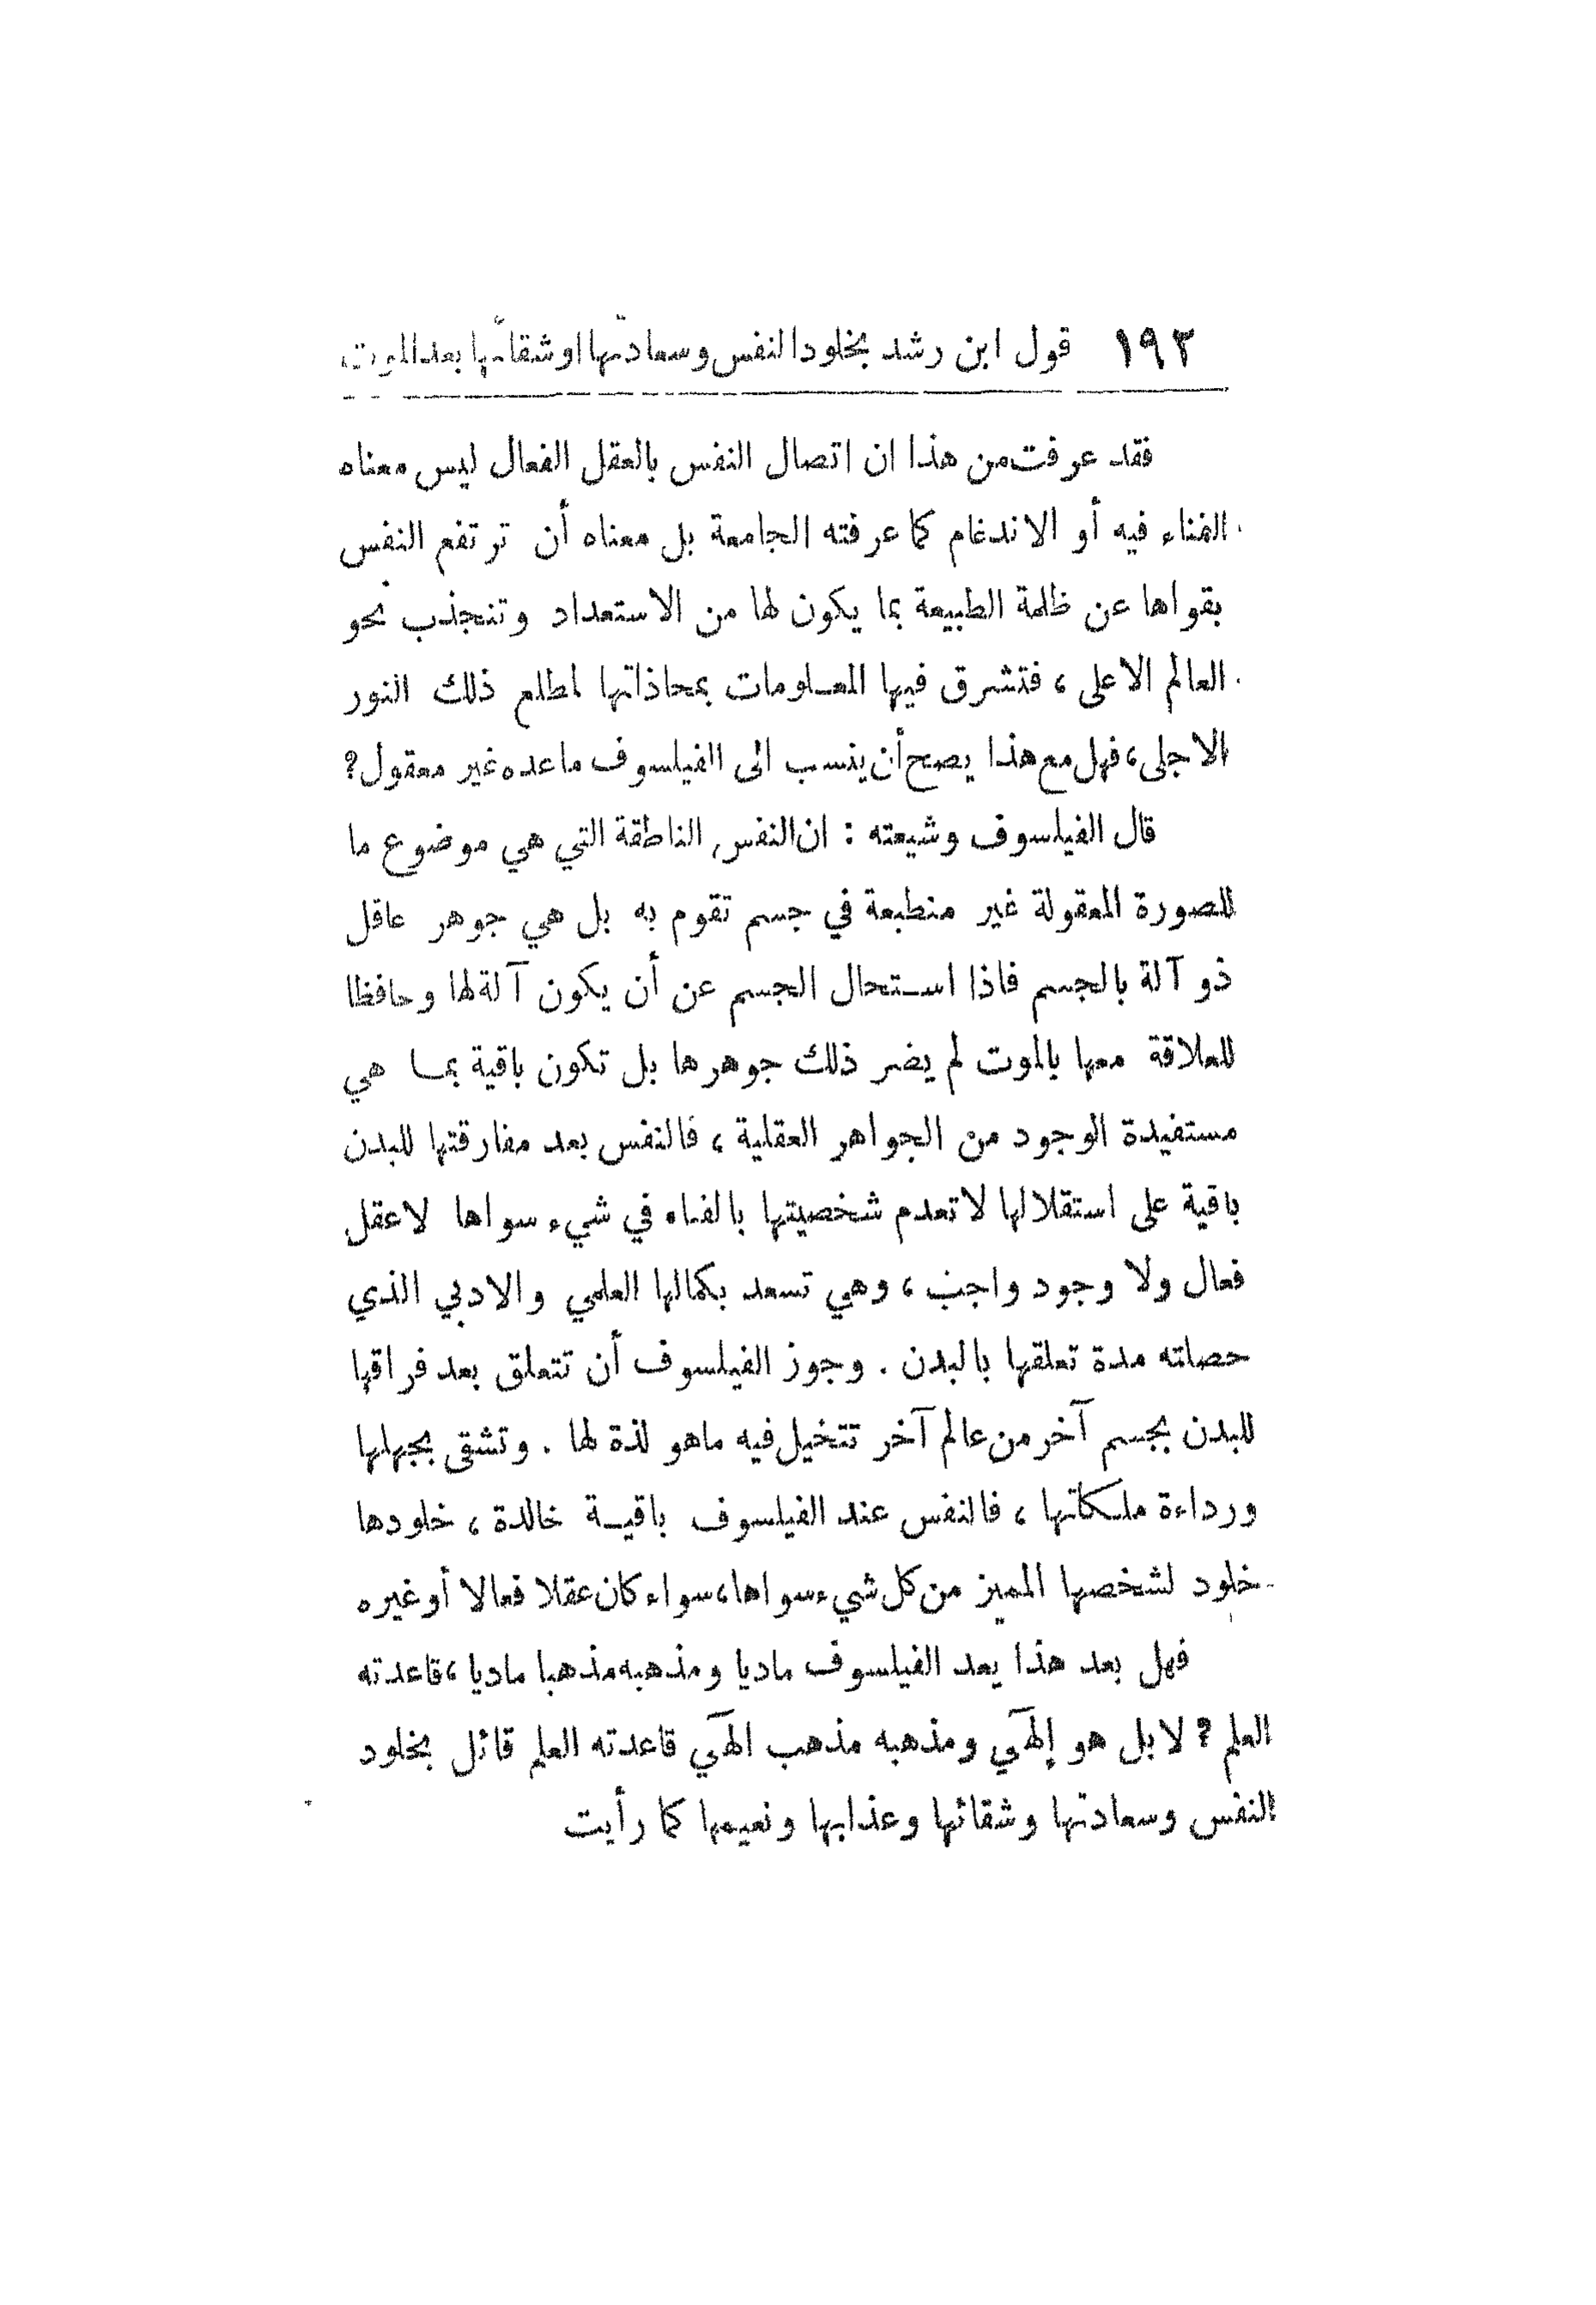 ١٩٢ قول ابن رشد بخلود النفس وسعادتها او شقائها بعد الموت
فقد عرفت من هذا ان اتصال النفس بالعقل الفعال ليس معناه
الفناء فيه أو الاندغام كما عرفته الجامعة بل معناه أن ترتفع النفس
بقواها عن ظلمة الطبيعة بما يكون لها من الاستعداد وتنجذب نحو
العالم الاعلى ، فتشرق فيها المعلومات بمحاذاتها لمطلع ذلك النور
الاجلى، فهل مع هذا يصح أن ينسب الى الفيلسوف ماعده غير معقول؟
قال الفيلسوف وشيعته : ان النفس الناطقة التي هي موضوع ما
للصورة المعقولة غير منطبعة في جسم تقوم به بل هي جوهر عاقل
ذو آلة بالجسم فاذا استحال الجسم عن أن يكون آلة لها وحافظا
للعلاقة معها بالموت لم يضر ذلك جوهرها بل تكون باقية بما هي
مستفيدة الوجود من الجواهر العقلية ، فالنفس بعد مفارقتها للبدن
باقية على استقلالها لا تعدم شخصيتها بالفناء في شيء سواها لا عقل
فعال ولا وجود واجب ، وهي تسعد بكمالها العلمي والادبي الذي
حصلته مدة تعلقها بالبدن . وجوز الفيلسوف أن تتعلق بعد فراقها
للبدن بجسم آخر من عالم آخر تتخيل فيه ماهو لذة لها . وتشقى بجهلها
ورداءة ملكاتها ، فالنفس عند الفيلسوف باقية خالدة ، خلودها
خلود لشخصها المميز من كل شيء سواها، سواء كان عقلا فعالا أو غيره
فهل بعد هذا يعد الفيلسوف ماديا ومذهبه مذهبا ماديا ، قاعدته
العلم ؟ لا بل هو إلهي ومذهبه مذهب الهي قاعدته العلم قائل بخلود
النفس وسعادتها وشقائها وعذابها ونعيمها كما رأيت